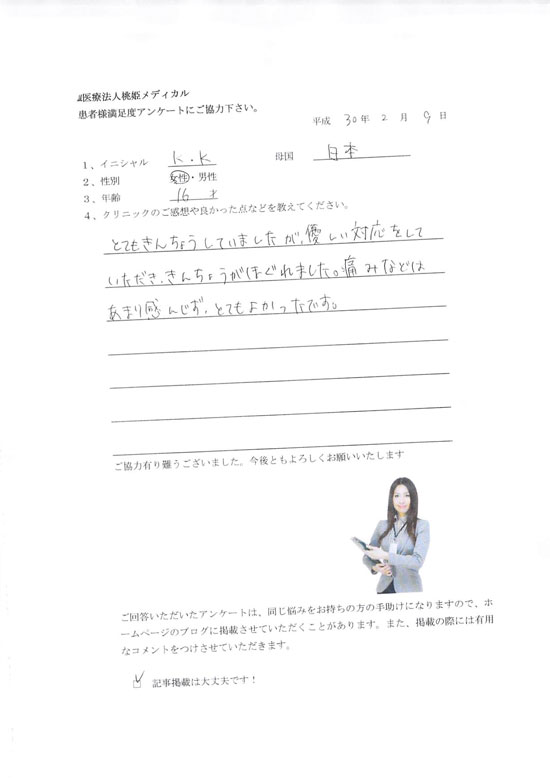 医療法人桃姫メディカル
患者様満足度アンケートにご協力下さい。
平成 30年 2 月 9 日
1、イニシャル K.K 母国 日本
2、性別 女性・男性
3、年齢 16 才
4、クリニックのご感想や良かった点などを教えてください。
とてもきんちょうしていましたが、優しい対応をして
いただき、きんちょうがほぐれました。痛みなどは
あまり感んじず、とてもよかったです。
ご協力有り難うございました。今後ともよろしくお願いいたします
ご回答いただいたアンケートは、同じ悩みをお持ちの方の手助けになりますので、ホ
ームページのブログに掲載させていただくことがあります。また、掲載の際には有用
なコメントをつけさせていただきます。
記事掲載は大丈夫です！